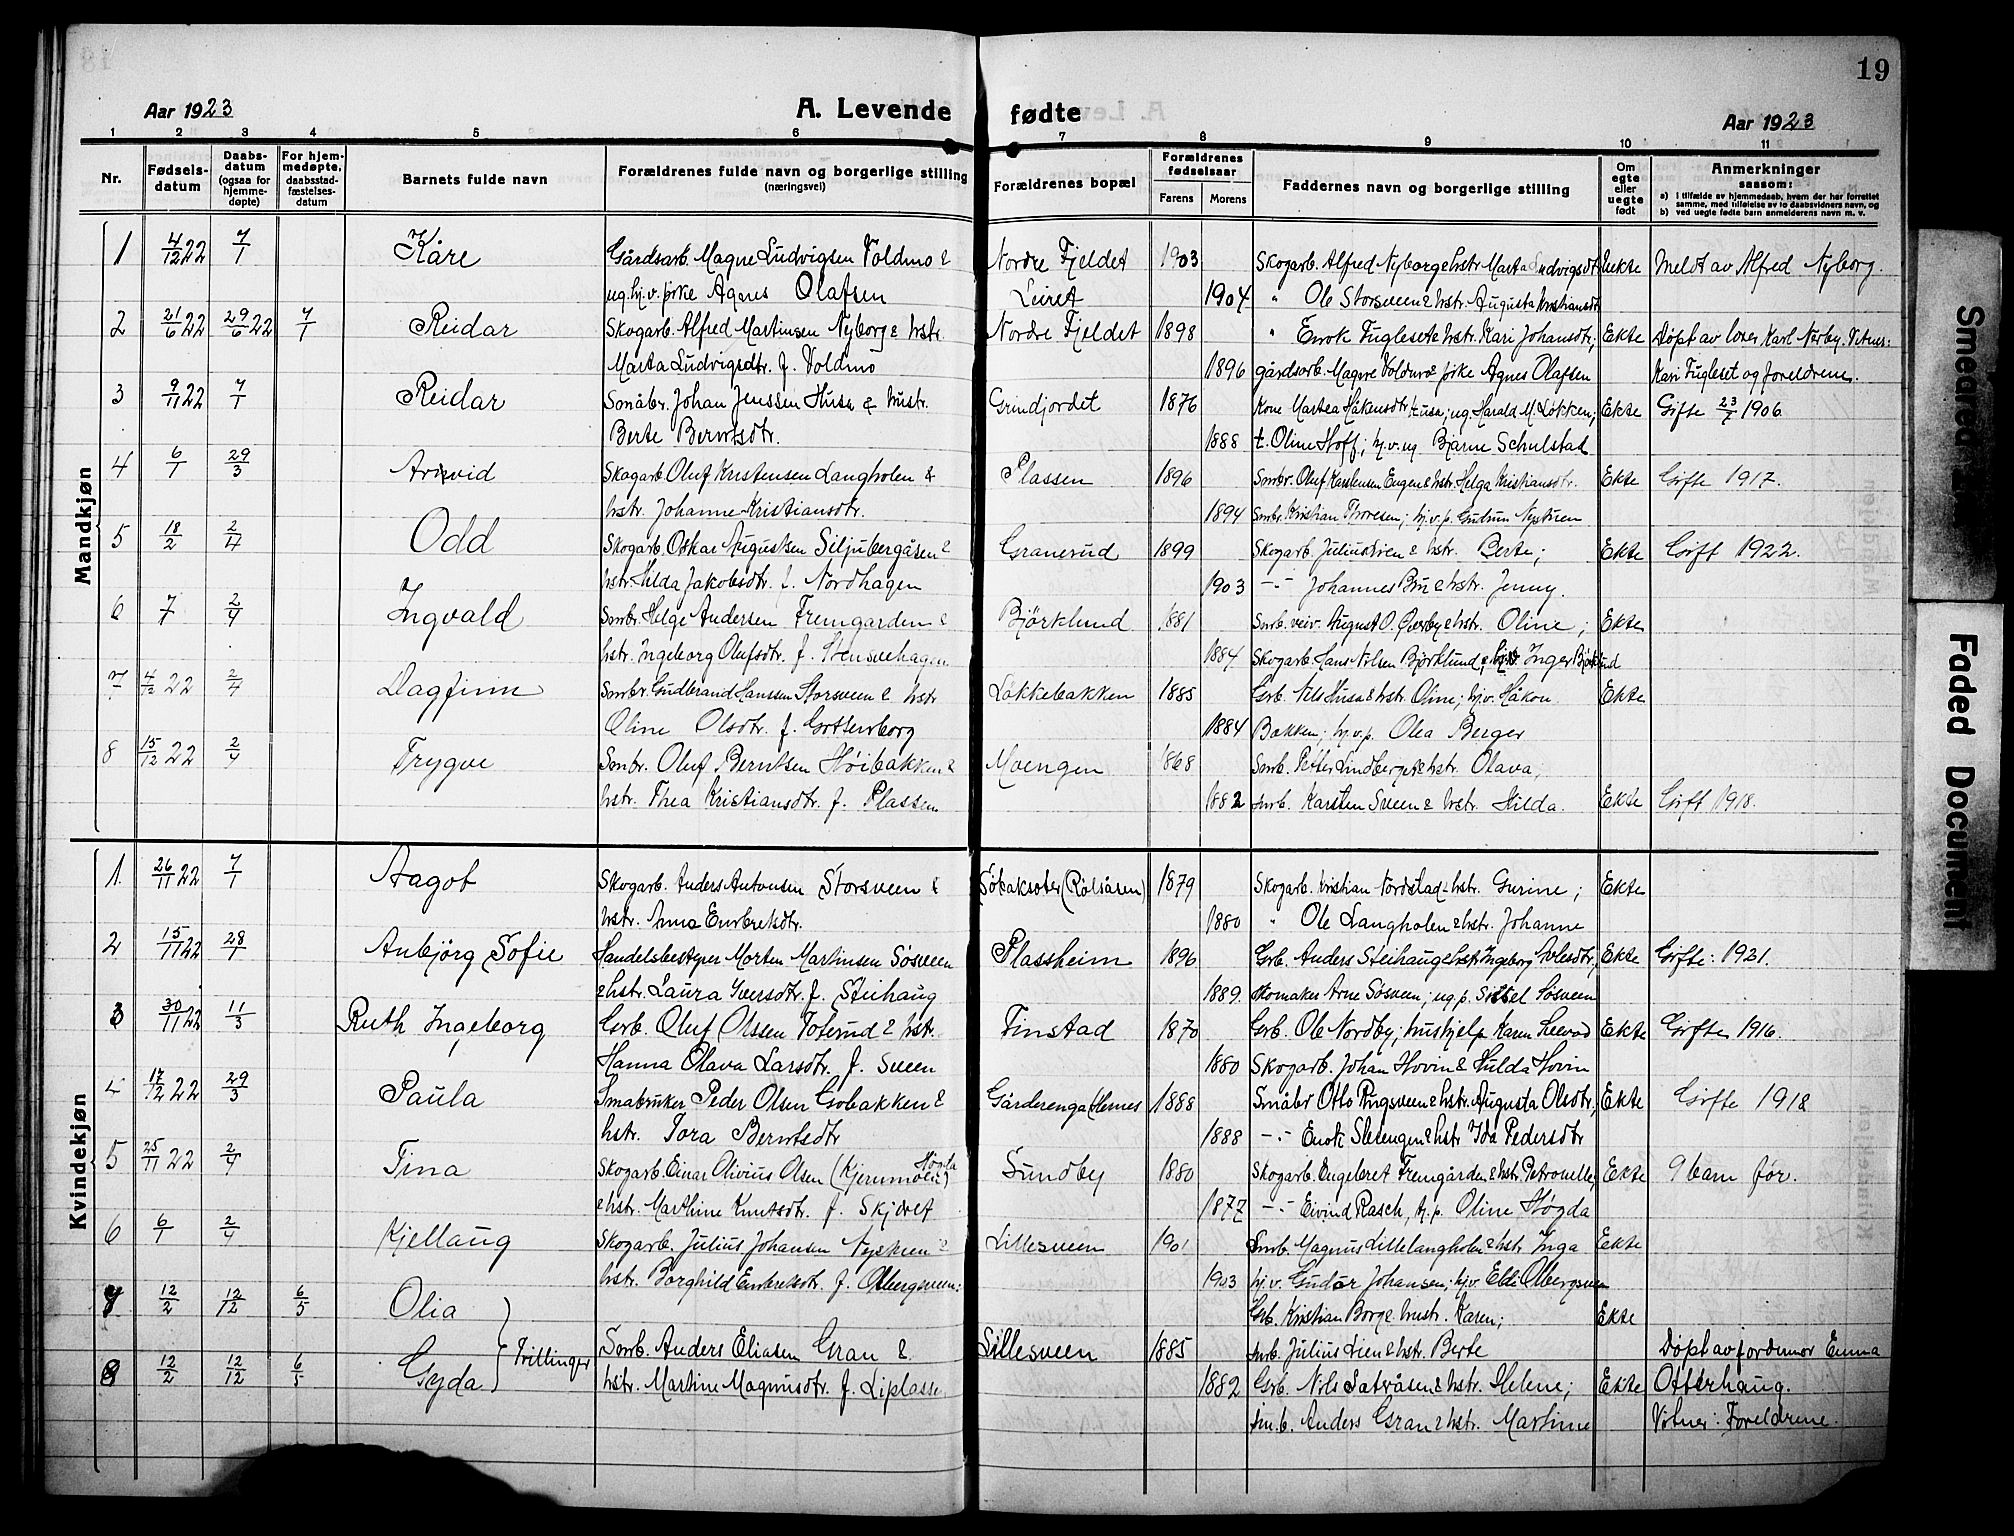 19
Aar 1923
A. Levende fødte
Aar 1923
1 2 3 4 5 6 7 8 9 10 11
Nr.
Fødsels-datum
Daabs-datum (ogsaa for hjemme-døpte)
For hjem-medøpte, daabsstad-fæstelses-datum
Barnets fulde navn
Forældrenes fulde navn og borgerlige stilling (næringsvei)
Forældrenes bopæl
Forældrenes fødselsaar
Farens Morens
Faddernes navn og borgerlige stilling
Om egte eller uegte født
Anmerkninger saasom:
a) i tilfælde av hjemmedaab, hvem der har forrettet samme, med tilføielse av to daabsvidners navn, og
b) ved uegte fødte barn anmelderens navn m. v.
Mandkjøn
1 4/12 22 7/1 Kåre Gårdsarb. Magne Ludvigsen Voldmo & Nordre Fjeldet 1903 Skogarb. Alfred Nyborg & hstr. Marta Ludvigsdt. Uekte Meldt av Alfred Nyborg.
ug. hj.v. pike Agnes Olafsen Leiret 1904 " Ole Storsveen & hstr. Augusta Kristiansdt.
2 21/6 22 29/6 22 7/1 Reidar Skogarb. Alfred Martinsen Nyborg & hstr. Nordre Fjeldet 1898 " Enok Fugleset & hstr. Kari Johansdtr; Ekte Døpt av lærer Karl Nerby. Vitner:
Marta Ludvigsdtr. f. Voldmo 1896 gårdsarb. Magne Voldmo & pike Agnes Olafsen Kari Fugleset og foreldrene.
3 9/11 22 7/1 Reidar Småbr. Johan Jenssen Husa & hustr. Grindjordet 1876 Kone Martea Håkensdtr. Husa; ug. Harald M. Løkken; Ekte Gifte 23/7 1906
Berte Berntsdtr. 1888 t. Oline Hoff; hj.v. ug Bjarne Schulstad
4 6/1 29/3 Arvid Skogarb. Oluf Kristensen Langholen & Plassen 1896 Småbr. Oluf Karstensen Engen & hstr. Helga Kristiansdtr. Ekte Gifte 1917.
hstr. Johanne Kristiansdtr. 1894 Småbr. Kristian Thoresen; hj.v.p. Gudrun Nystuen
5 18/2 2/4 Odd Skogarb. Oskar Augustsen Siljubergåsen & Granerud 1899 Skogarb. Julius Lien & hstr. Berte; Ekte Gift 1922.
hstr. Hilda Jakobsdtr. f. Nordhagen 1903 -"- Johannes Bru & hstr. Jenny.
6 7/1 2/4 Ingvald Småbr. Helge Andersen Fremgarden & Bjørklund 1881 Småb. veiv. August O. Øverby & hstr. Oline; Ekte
hstr. Ingeborg Olufsdtr. f. Stensvehagen 1884 Skogarb. Hans Nilsen Bjørklund; hj.v. Inger Bjørklund
7 4/12 22 2/4 Dagfinn Småbr. Gudbrand Hanssen Storsveen & hstr Løkkebakken 1885 Grb. Nils Husa & hstr. Oline; hj.v. Håkon Ekte
Oline Olsdtr. f. Gottenborg 1884 Bakken; hj.v.p. Olea Berger
8 15/12 22 2/4 Trygve Småbr. Oluf Berntsen Høibakken & Moengen 1868 Småb. Petter Lindberget & hstr. Olava;
hstr. Thea Kristiansdtr. f. Plassen 1882 småb. Karsten Sveen & hstr. Hilda. Ekte Gift 1918.
Kvindekjøn
1 26/11 22 7/1 Aagot Skogarb. Anders Antonsen Storsveen & Søbaksæter (Rølsåsen) 1879 Skogarb. Kristian Nordstad & hstr. Gurine; Ekte
hstr. Anna Embretsdtr. 1880 " Ole Langholen & hstr. Johanne
2 15/11 22 28/1 Anbjørg Sofie Handelsbestyrer Morten Martinsen Søsveen Plassheim 1896 Grb. Anders Steihaug & hstr. Ingeborg Arlesdtr; Ekte Gifte: 1921.
& hstr. Laura Iversdtr. f. Steihaug 1889 Skomaker Arne Søsveen; ug.p. Sissel Søsveen
3 30/11 22 11/3 Ruth Ingeborg Grb. Oluf Olssen Toserud & hstr. Finstad 1870 Grb. Ole Nordby; hushjelp Karen Ekte Gifte 1916.
Hanna Olava Larsdtr. f. Sveen 1880 Skogarb. Johan Hovin & Hulda Hovin
4 17/12 22 29/3 Paula Småbruker Peder Olsen Gobakken & Gårderenga Hernes 1888 Småbr Otto Ringsveen & hstr. Augusta Olsdtr; Ekte Gifte 1918
hstr. Tora Berntsdtr 1888 -"- Enok Slesengen & hstr Ida Pedersdtr
5 25/11 22 2/4 Tina Skogarb. Einar Olivius Olsen (Kjernmoen) Høgda Sundby 1880 Skogarb. Engebret Fremgården & hstr. Petronelle; Ekte 9 barn før.
& hstr. Marthine Knutsdtr. f. Skjæret 1877 -"- Eivind Rasch, hj.p. Oline Høgda
6 6/1 2/4 Kjellaug Skogarb. Julius Johansen Nystuen & Lillesveen 1901 Småb. Magnus Lillelangholen & hstr Inga Ekte
hstr. Borghild Embretsdtr. f. Olbergsveen: 1903 hj.v. Gudør Johansen; hj.v. Elde Olbergsveen
7 12/2 12/12 6/5 Olia Grb. Kristian Borg & hustr. Karen; Ekte
Tvillinger Småb. Anders Eliasen Gran & Lillesveen 1885 småb. Julius Lien & hstr. Berte Døpt av jordmor Emma
8 12/2 12/12 6/5 Gyda hstr. Martine Magnusdtr. f. Liplassen 1882 Grb. Nils Sætråsen & hstr. Helene; Ekte Otterhaug.
sm.b. Anders Gran & hstr. Martine Vitner: Foreldrene.
Smearede
Faded Document